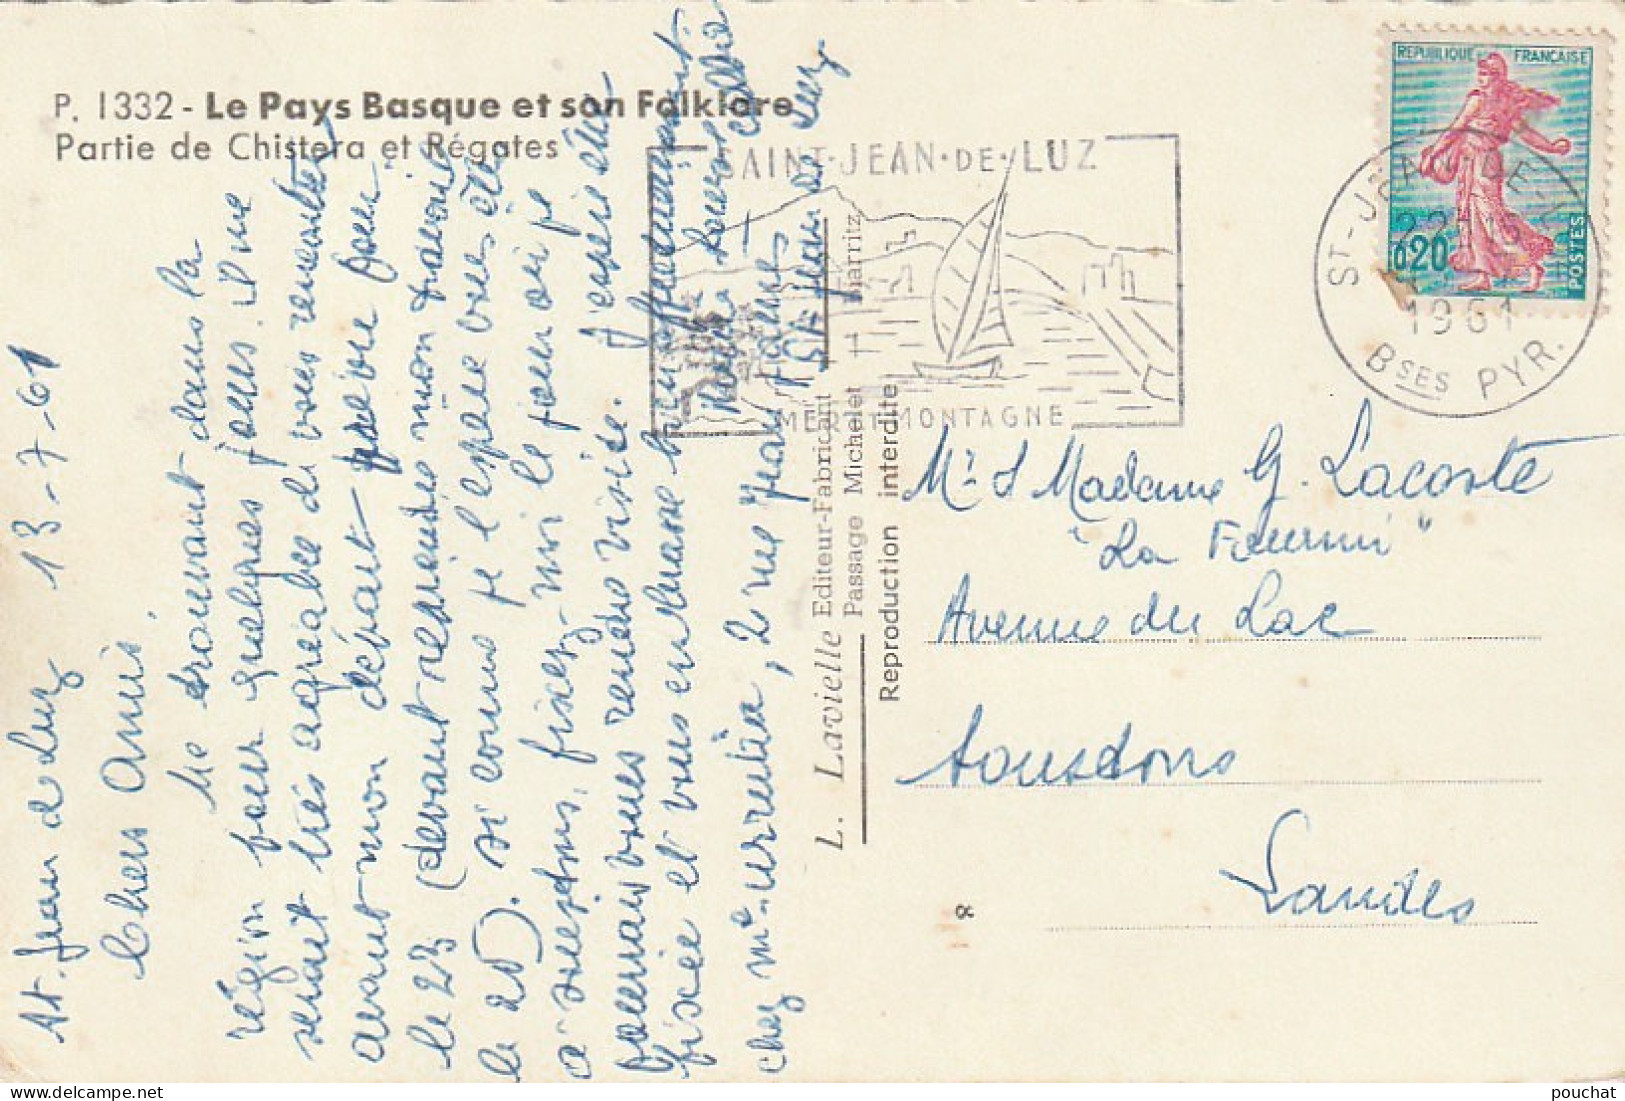 P. 1332 - Le Pays Basque et son Folklore
Partie de Chistera et Régates
St. Jean de Luz 13-7-61
Chers Amis
Me trouvant dans la
région pour quelques jours. Il me
serait très agréable de vous rencontrer
avant mon départ prévu pour
le 23 (devant reprendre mon travail
le 25). Si comme je l'espère vous êtes
à Soustons, fixez-moi le jour où je
pourrais vous rendre visite. J'espère être
fixée et vous embrasse bien affectueusement
chez Mme Urrutia, 2 rue Jean
St Jean de Luz
L. Lavielle Editeur-Fabricant
Passage Michelet Biarritz
Reproduction interdite
SAINT·JEAN·DE·LUZ
MER ET MONTAGNE
REPUBLIQUE FRANÇAISE
0,20
POSTES
ST-JEAN-DE-LUZ
1961
BSES PYR.
Mr & Madame G. Lacoste
"La Fourmi"
Avenue du Lac
Soustons
Landes
8
pouchat